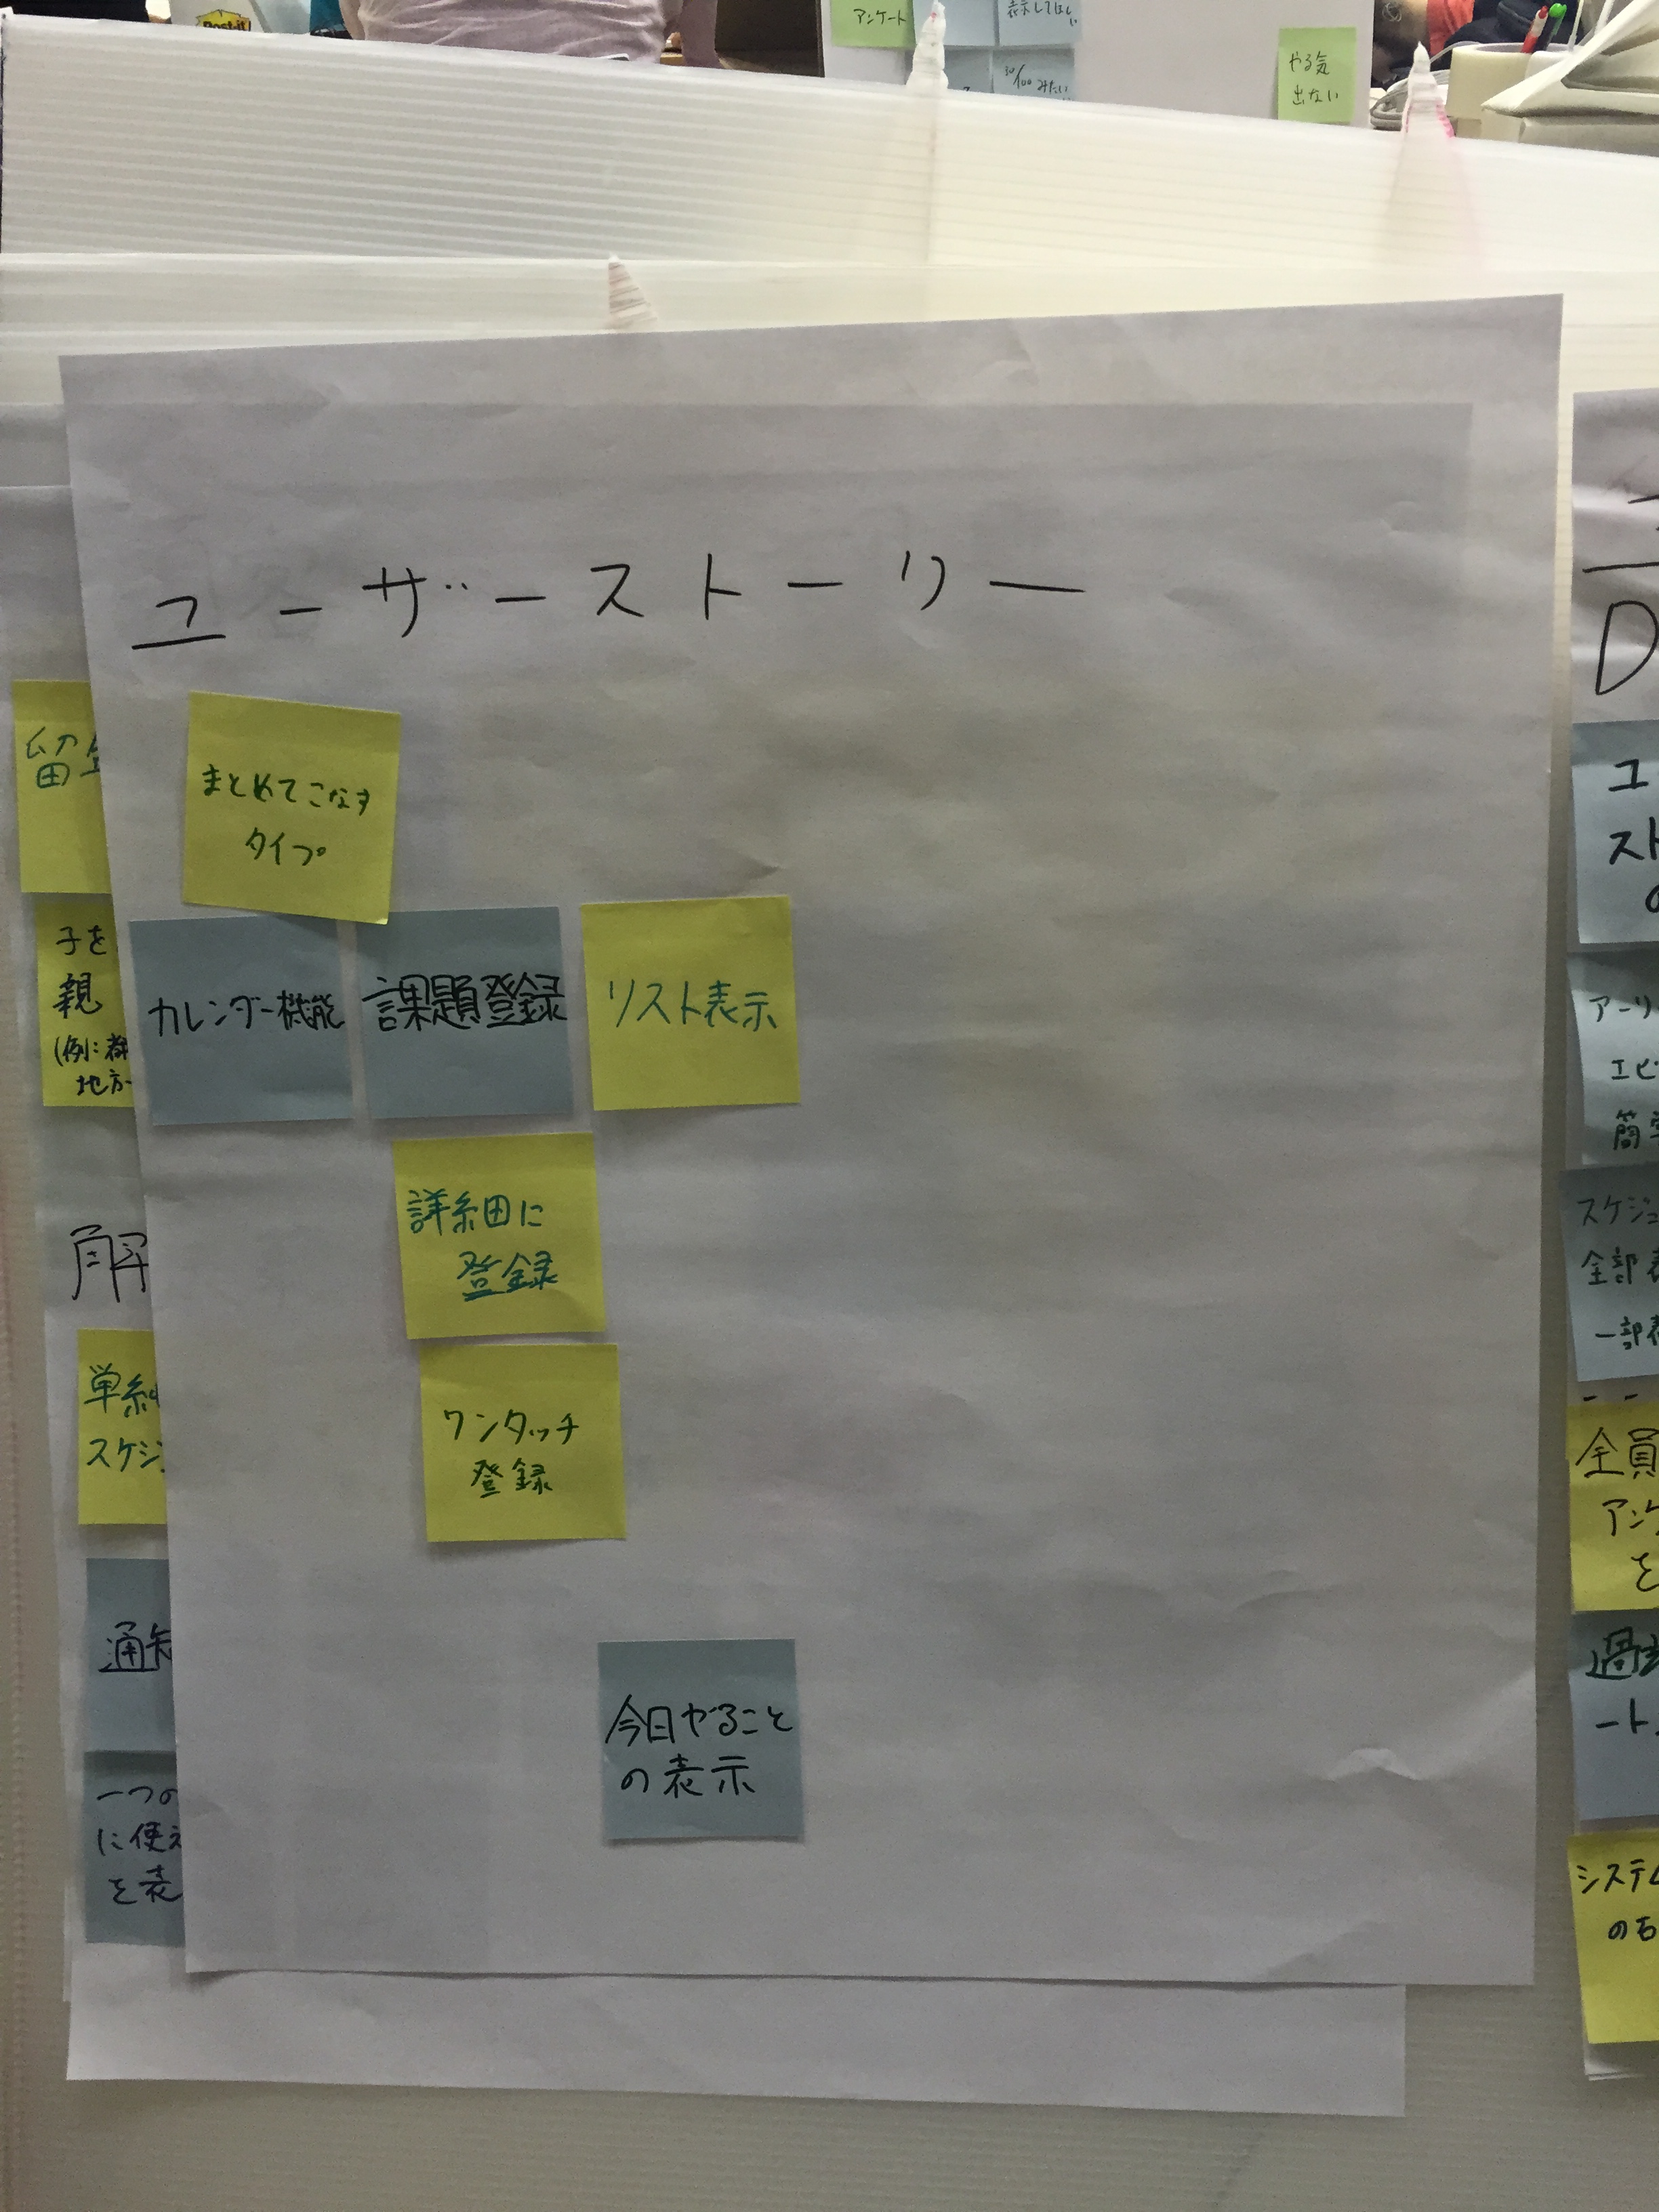 Post-it
アンケート
表示してほしい
30/100みたい
やる気
出ない
ユーザーストーリー
まとめてこなす
タイプ
カレンダー機能
課題登録
リスト表示
詳細に
登録
ワンタッチ
登録
今日やること
の表示
留
子を
親
(例:
地方
解
単純
スケジ
通知
一つの
に使え
を表
D
ユ
スト
の
アーリ
エピ
簡
スケジュ
全部表
一部表
全員
アンケ
を
過去
ート
システム
の右